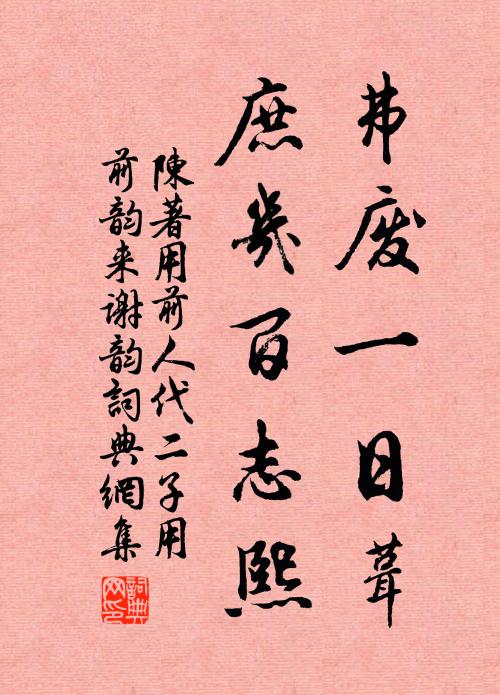 弗废一日葺
庶幾百志熙
陳著用前人代二子用
前韵来谢韵詞典網集
詞典网印